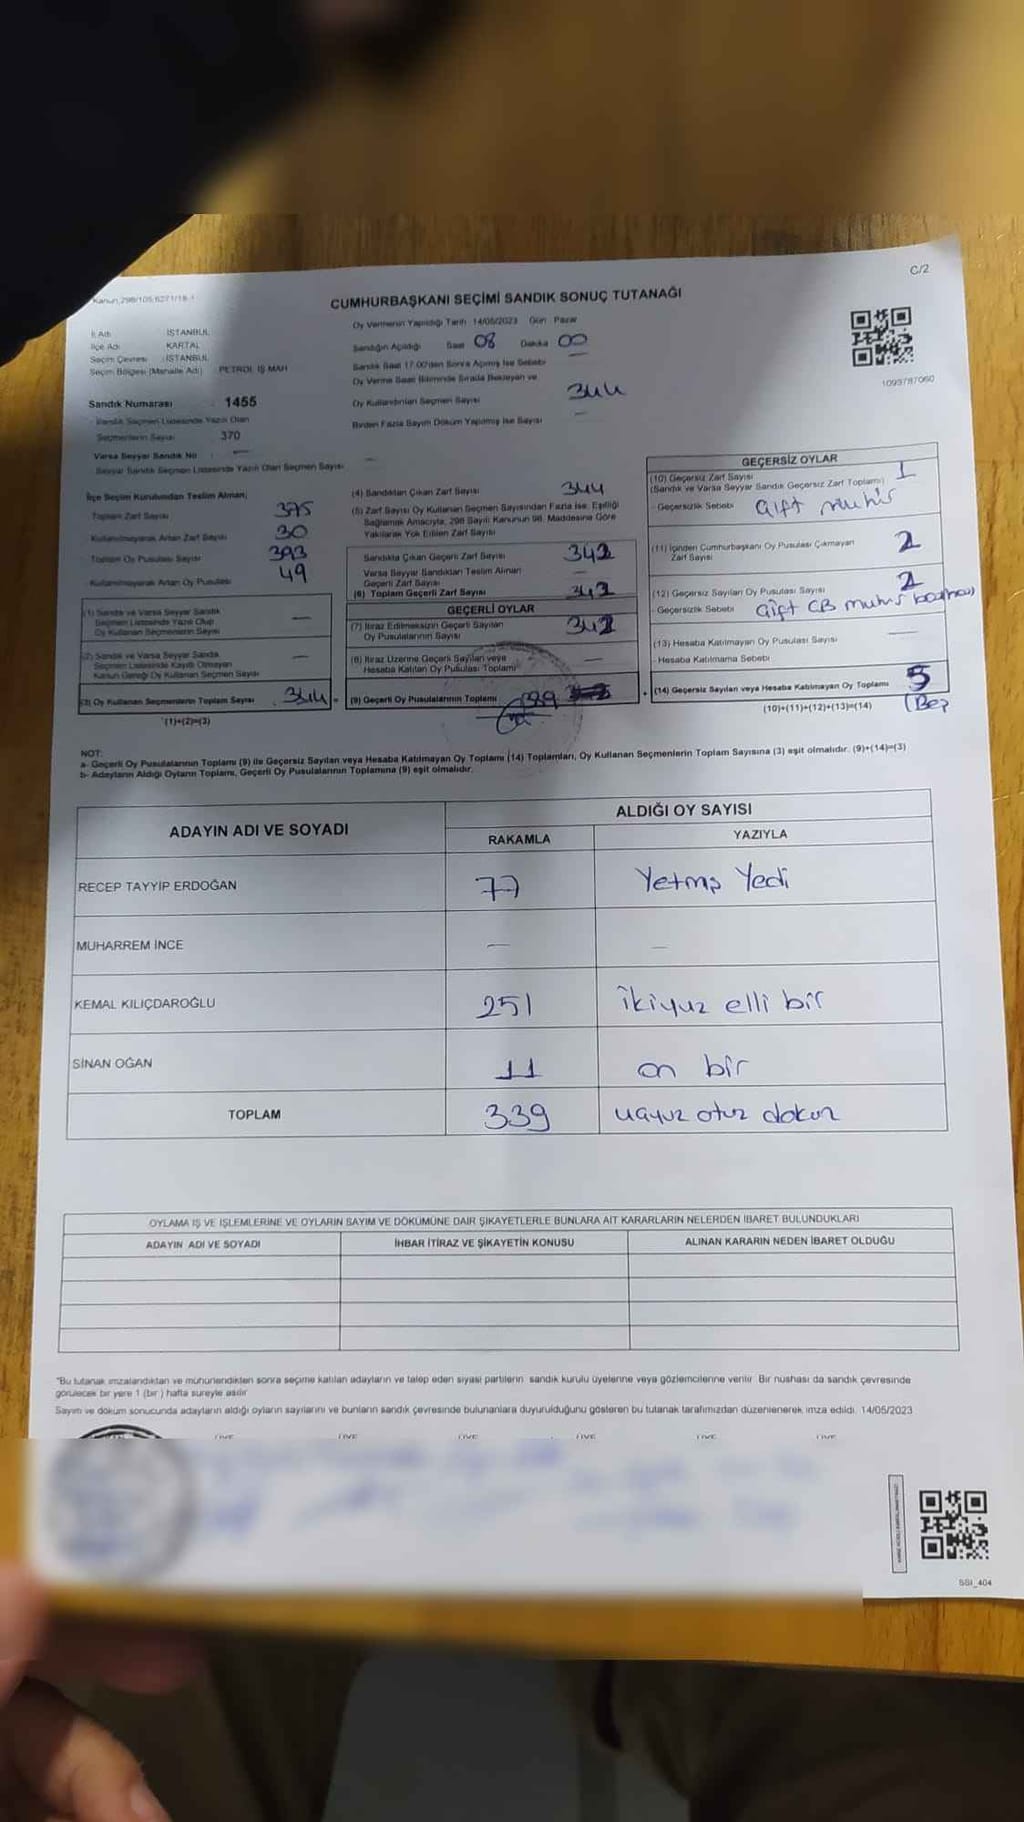 C/2
Kanun 298/105, 6271/18-1
CUMHURBAŞKANI SEÇİMİ SANDIK SONUÇ TUTANAĞI
İl Adı : İSTANBUL
İlçe Adı : KARTAL
Seçim Çevresi : İSTANBUL
Seçim Bölgesi (Mahalle Adı) : PETROL İŞ MAH
Sandık Numarası : 1455
Sandık Seçmen Listesinde Yazılı Olan
Seçmenlerin Sayısı : 370
Varsa Seyyar Sandık No : —
Seyyar Sandık Seçmen Listesinde Yazılı Olan Seçmen Sayısı : —
Oy Vermenin Yapıldığı Tarih 14/05/2023 Gün Pazar
Sandığın Açıldığı Saat 08 Dakika 00
Sandık Saat 17.00'den Sonra Açılmış İse Sebebi —
Oy Verme Saati Bitiminde Sırada Bekleyen ve
Oy Kullandırılan Seçmen Sayısı 344
Birden Fazla Sayım Döküm Yapılmış İse Sayısı —
1093787060
İlçe Seçim Kurulundan Teslim Alınan;
Toplam Zarf Sayısı 375
Kullanılmayarak Artan Zarf Sayısı 30
Toplam Oy Pusulası Sayısı 393
Kullanılmayarak Artan Oy Pusulası 49
(1) Sandık ve Varsa Seyyar Sandık
Seçmen Listesinde Yazılı Olup
Oy Kullanan Seçmenlerin Sayısı —
(2) Sandık ve Varsa Seyyar Sandık
Seçmen Listesinde Kayıtlı Olmayan
Kanun Gereği Oy Kullanan Seçmen Sayısı —
(3) Oy Kullanan Seçmenlerin Toplam Sayısı 344 =
(1)+(2)=(3)
(4) Sandıktan Çıkan Zarf Sayısı 344
(5) Zarf Sayısı Oy Kullanan Seçmen Sayısından Fazla İse, Eşitliği
Sağlamak Amacıyla, 298 Sayılı Kanunun 98. Maddesine Göre
Yakılarak Yok Edilen Zarf Sayısı
Sandıkta Çıkan Geçerli Zarf Sayısı 342
Varsa Seyyar Sandıktan Teslim Alınan
Geçerli Zarf Sayısı —
(6) Toplam Geçerli Zarf Sayısı 342
GEÇERLİ OYLAR
(7) İtiraz Edilmeksizin Geçerli Sayılan
Oy Pusulalarının Sayısı 342
(8) İtiraz Üzerine Geçerli Sayılan veya
Hesaba Katılan Oy Pusulası Toplamı —
(9) Geçerli Oy Pusulalarının Toplamı 339 +
GEÇERSİZ OYLAR
(10) Geçersiz Zarf Sayısı 1
(Sandık ve Varsa Seyyar Sandık Geçersiz Zarf Toplamı)
Geçersizlik Sebebi Çift Mühür
(11) İçinden Cumhurbaşkanı Oy Pusulası Çıkmayan
Zarf Sayısı 2
(12) Geçersiz Sayılan Oy Pusulası Sayısı 2
Geçersizlik Sebebi Çift CB mühür
(13) Hesaba Katılmayan Oy Pusulası Sayısı —
Hesaba Katılmama Sebebi
(14) Geçersiz Sayılan veya Hesaba Katılmayan Oy Toplamı 5
(10)+(11)+(12)+(13)=(14) (Beş
NOT:
a- Geçerli Oy Pusulalarının Toplamı (9) ile Geçersiz Sayılan veya Hesaba Katılmayan Oy Toplamı (14) Toplamları, Oy Kullanan Seçmenlerin Toplam Sayısına (3) eşit olmalıdır. (9)+(14)=(3)
b- Adayların Aldığı Oyların Toplamı, Geçerli Oy Pusulalarının Toplamına (9) eşit olmalıdır.
ADAYIN ADI VE SOYADI
ALDIĞI OY SAYISI
RAKAMLA YAZIYLA
RECEP TAYYİP ERDOĞAN 77 Yetmiş Yedi
MUHARREM İNCE — —
KEMAL KILIÇDAROĞLU 251 ikiyuz elli bir
SİNAN OĞAN 11 on bir
TOPLAM 339 uçyuz otuz dokuz
OYLAMA İŞ VE İŞLEMLERİNE VE OYLARIN SAYIM VE DÖKÜMÜNE DAİR ŞİKAYETLERLE BUNLARA AİT KARARLARIN NELERDEN İBARET BULUNDUKLARI
ADAYIN ADI VE SOYADI İHBAR İTİRAZ VE ŞİKAYETİN KONUSU ALINAN KARARIN NEDEN İBARET OLDUĞU
"Bu tutanak imzalandıktan ve mühürlendikten sonra seçime katılan adayların ve talep eden siyasi partilerin sandık kurulu üyelerine veya gözlemcilerine verilir. Bir nüshası da sandık çevresinde
görülecek bir yere 1 (bir ) hafta süreyle asılır
Sayım ve döküm sonucunda adayların aldığı oyların sayılarını ve bunların sandık çevresinde bulunanlara duyurulduğunu gösteren bu tutanak tarafımızdan düzenlenerek imza edildi. 14/05/2023
ÜYE ÜYE ÜYE ÜYE ÜYE ÜYE
SSI_404